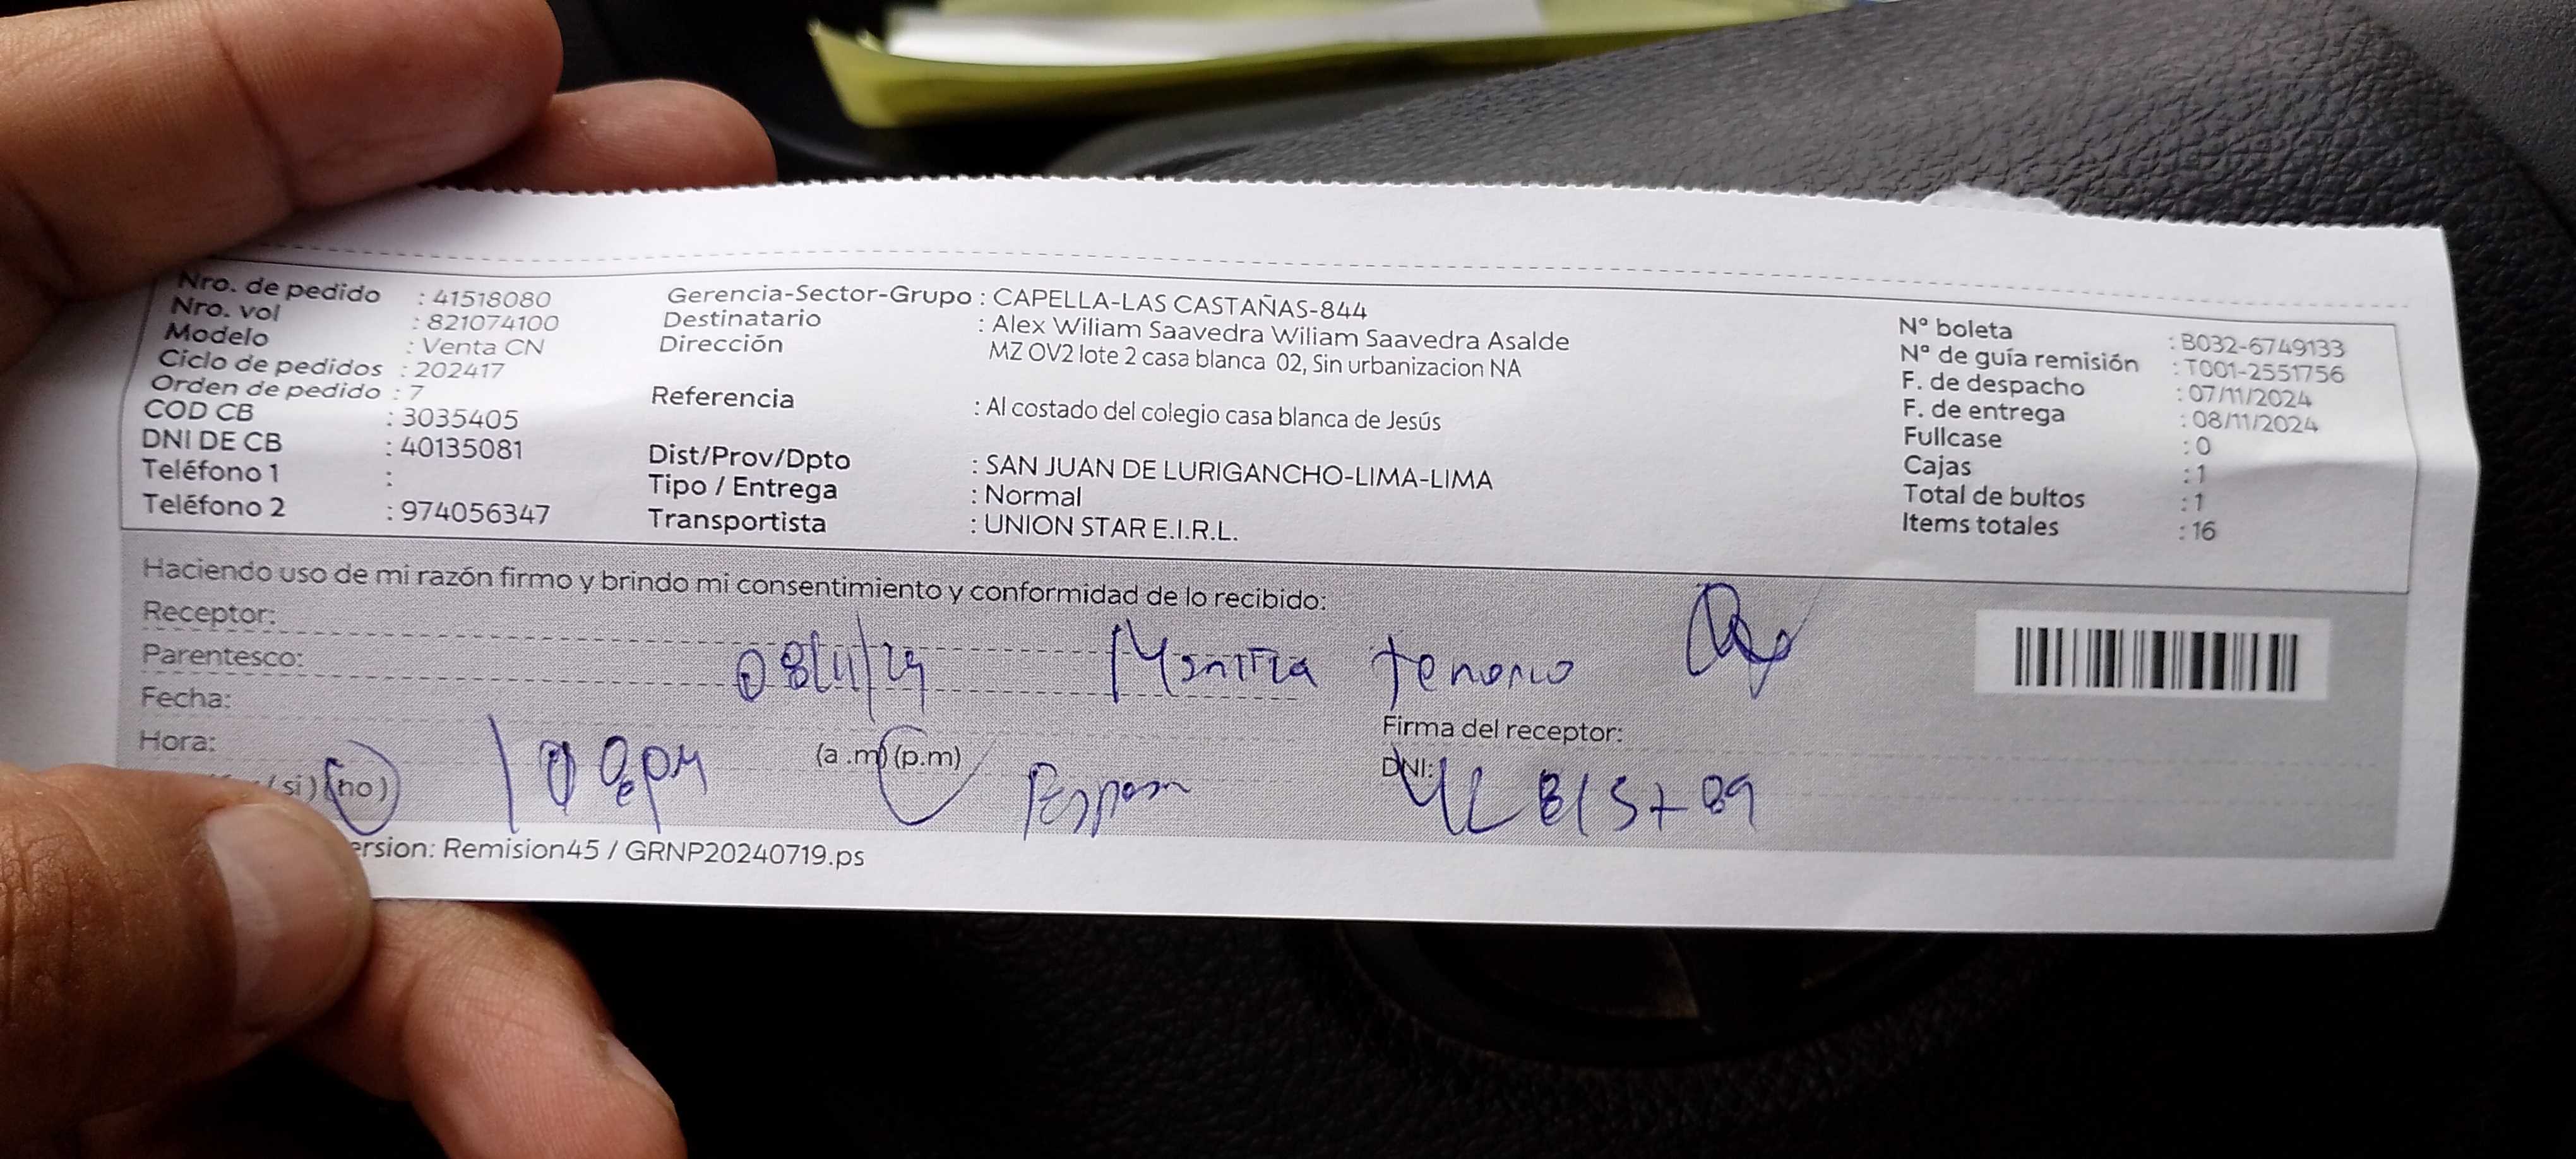 Nro. de pedido : 41518080
Nro. vol : 821074100
Modelo : Venta CN
Ciclo de pedidos : 202417
Orden de pedido : 7
COD CB : 3035405
DNI DE CB : 40135081
Teléfono 1 :
Teléfono 2 : 974056347
Gerencia-Sector-Grupo : CAPELLA-LAS CASTAÑAS-844
Destinatario : Alex Wiliam Saavedra Wiliam Saavedra Asalde
Dirección MZ OV2 lote 2 casa blanca 02, Sin urbanizacion NA
Referencia : Al costado del colegio casa blanca de Jesús
Dist/Prov/Dpto : SAN JUAN DE LURIGANCHO-LIMA-LIMA
Tipo / Entrega : Normal
Transportista : UNION STAR E.I.R.L.
N° boleta : B032-6749133
N° de guía remisión : T001-2551756
F. de despacho : 07/11/2024
F. de entrega : 08/11/2024
Fullcase : 0
Cajas : 1
Total de bultos : 1
Items totales : 16
Haciendo uso de mi razón firmo y brindo mi consentimiento y conformidad de lo recibido:
Receptor:
Parentesco: Tenorio
Fecha:
Firma del receptor:
Hora: (a .m) (p.m)
DNI:
(si) (no)
ersion: Remision45 / GRNP20240719.ps